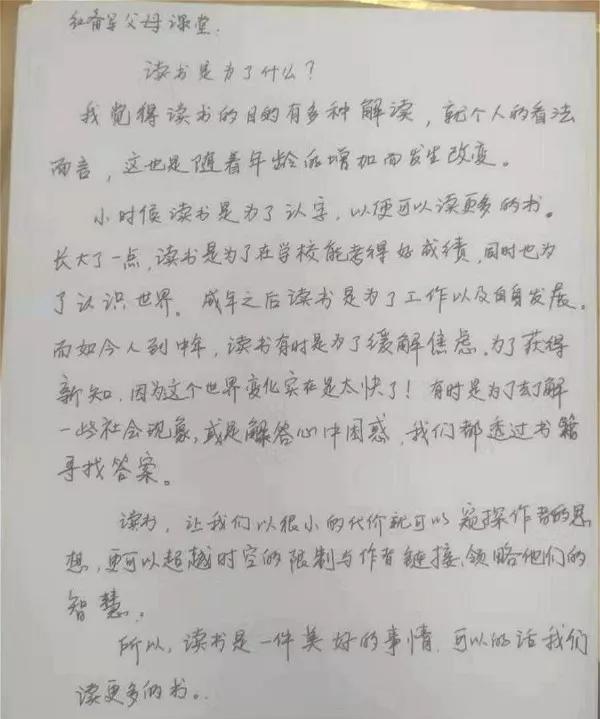 父母课堂.
读书是为了什么？
我觉得读书的目的有多种解读，就个人的看法
而言，这也是随着年龄的增加而发生改变。
小时候读书是为了认字，以便可以读更多的书。
长大了一点，读书是为了在学校能考得好成绩，同时也为
了认识世界。成年之后读书是为了工作以及自身发展。
而如今人到中年，读书有时是为了缓解焦虑、为了获得
新知，因为这个世界变化实在是太快了！有时是为了去了解
一些社会现象，或是解答心中困惑，我们都透过书籍
寻找答案。
读书，让我们以很小的代价就可以窥探作者的思
想，更可以超越时空的限制与作者链接、领略他们的
智慧。
所以，读书是一件美好的事情，可以的话我们
读更多的书。